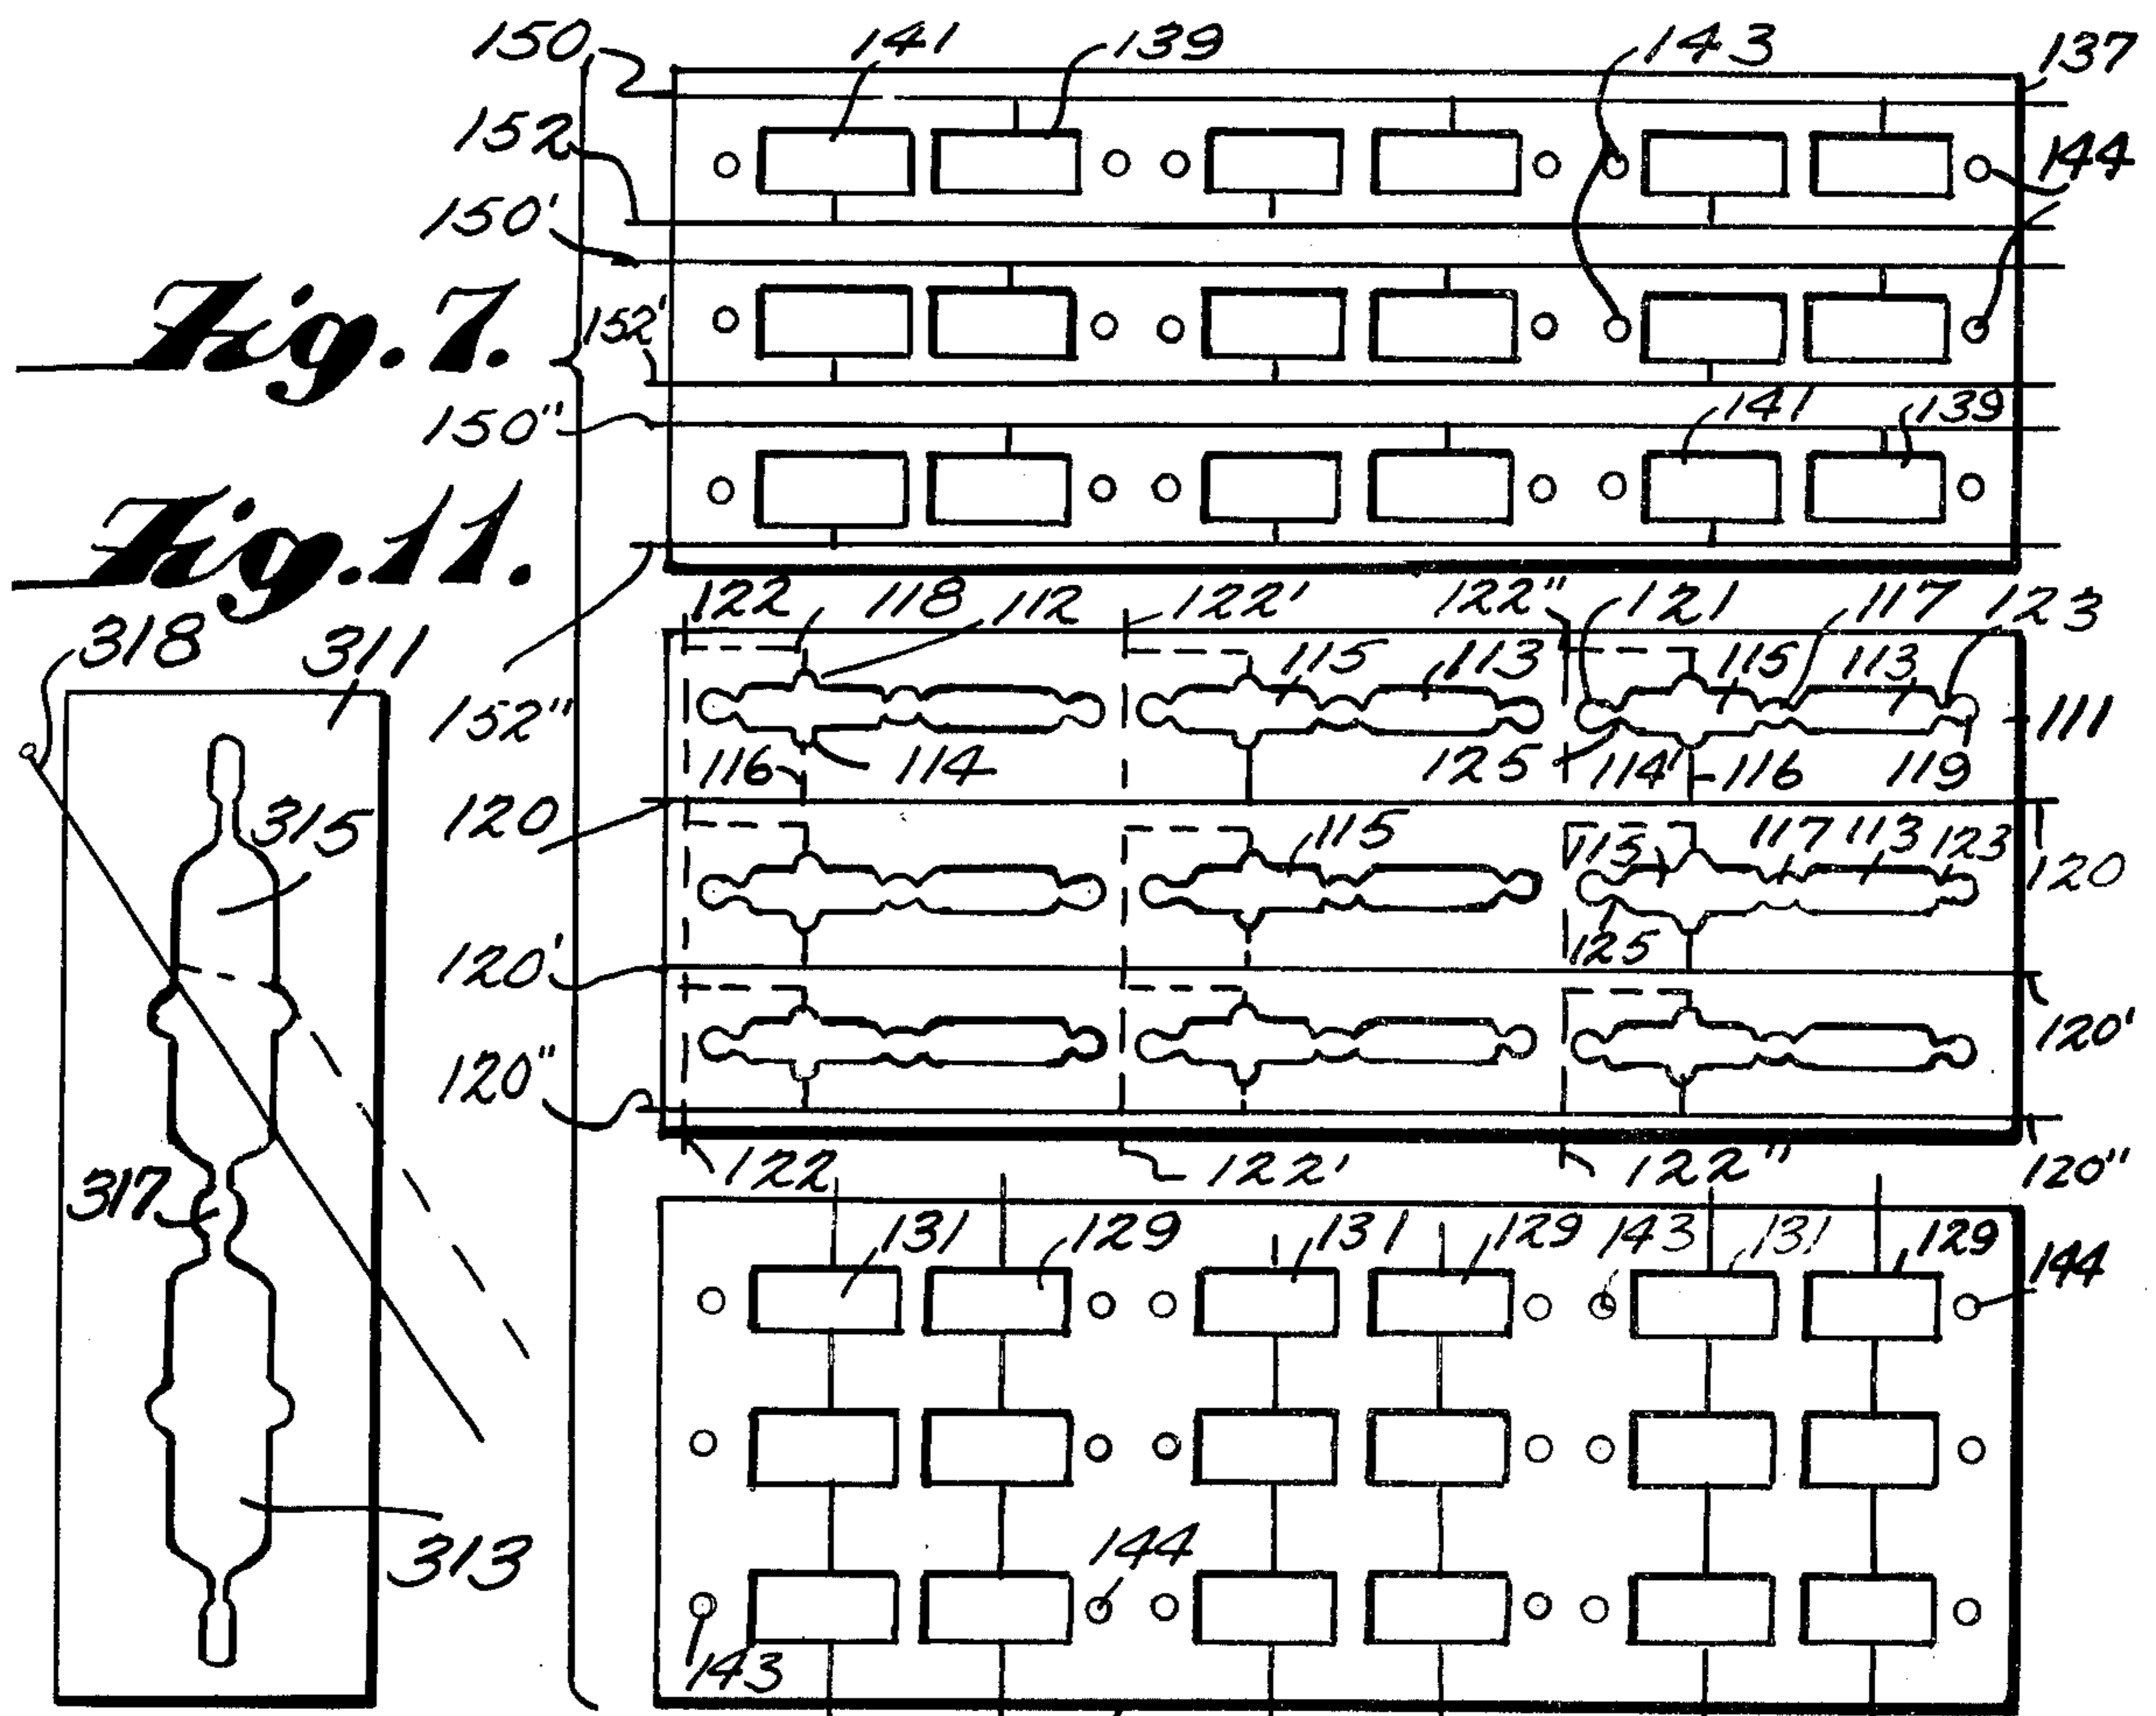 150 141 139 143 137
152 144
150'
Fig. 7.
152'
150" 141 139
Fig. 11.
122 118 112 122' 122" 121 117 123
318 311
115 113 115 113
152" 111
116 114 125 114' 116 119
120
315 115 113 117 113 123 120
125
120' 120'
120"
122 122' 122" 120"
317
131 129 131 129 143 131 129 144
144
313
143